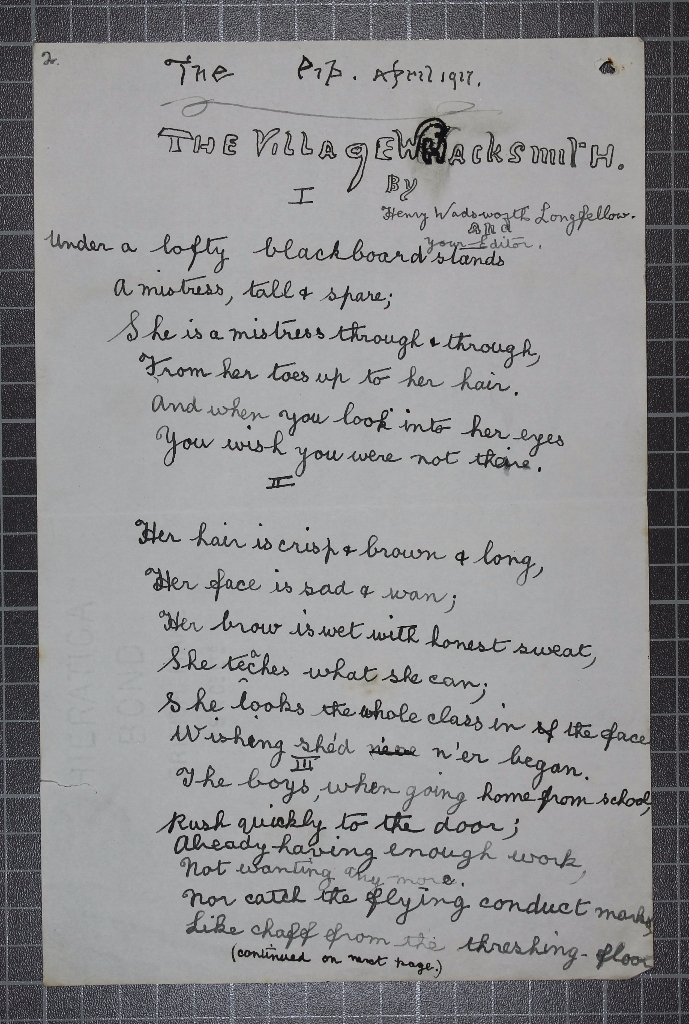 2.
The Pip. April 1927.
THE VILLAGE WHACKSMITH.
By
I
Henry Wadsworth Longfellow.
and
your Editor.
Under a lofty blackboard stands
A mistress, tall & spare;
She is a mistress through & through,
From her toes up to her hair.
And when you look into her eyes
You wish you were not there.
II
Her hair is crisp & brown & long,
Her face is sad & wan;
Her brow is wet with honest sweat,
She teaches what she can;
She looks the whole class in the face
Wishing she'd n'er began.
III
The boys, when going home from school,
Rush quickly to the door;
Already having enough work,
Not wanting any more.
Nor catch the flying conduct marks
Like chaff from the threshing-floor
(continued on next page.)
HIERATICA
BOND